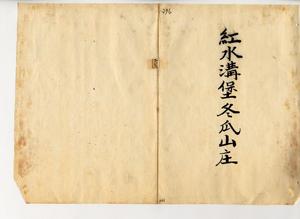 紅水溝堡冬瓜山庄